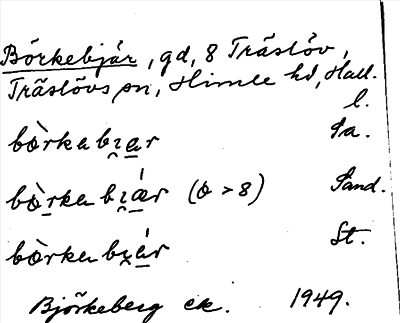 Börkebjär, gd, 8 Träslöv,
Träslövs sn, Himle hd, Hall.
l.
bòrkabɪ̯a̲r Sa.
bò̲rkabɪ̯ǽ̲r (o > 8) Sand.
bòrkabɪ̯á̲r St.
Björkeberg ek. 1949.